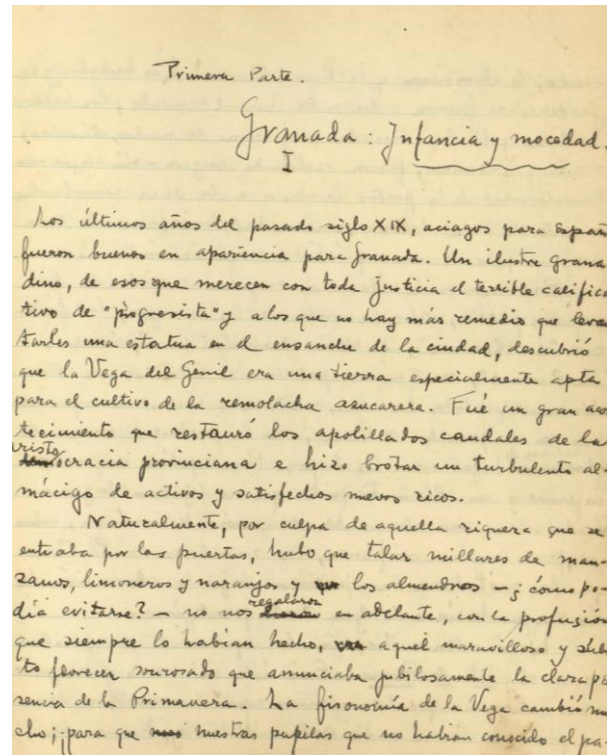 Primera Parte.
Granada: Infancia y mocedad.
I
Los últimos años del pasado siglo XIX, aciagos para Españ
fueron buenos en apariencia para Granada. Un ilustre grana
dino, de esos que merecen con toda justicia el terrible califica
tivo de "progresista" y a los que no hay más remedio que levan
tarles una estatua en el ensanche de la ciudad, descubrió
que la Vega del Genil era una tierra especialmente apta
para el cultivo de la remolacha azucarera. Fué un gran acon
tecimiento que restauró los apolillados caudales de la
aristocracia provinciana e hizo brotar un turbulento al-
mácigo de activos y satisfechos nuevos ricos.
Naturalmente, por culpa de aquella riqueza que se
entraba por las puertas, hubo que talar millares de man-
zanos, limoneros y naranjos y los almendros – ¿cómo po-
día evitarse? – no nos regalaron en adelante, con la profusión
que siempre lo habían hecho, aquel maravilloso y súbi
to florecer sonrosado que anunciaba jubilosamente la clara pre
sencia de la Primavera. La fisonomía de la Vega cambió mu
cho; para que nuestras pupilas que no habían conocido el pa